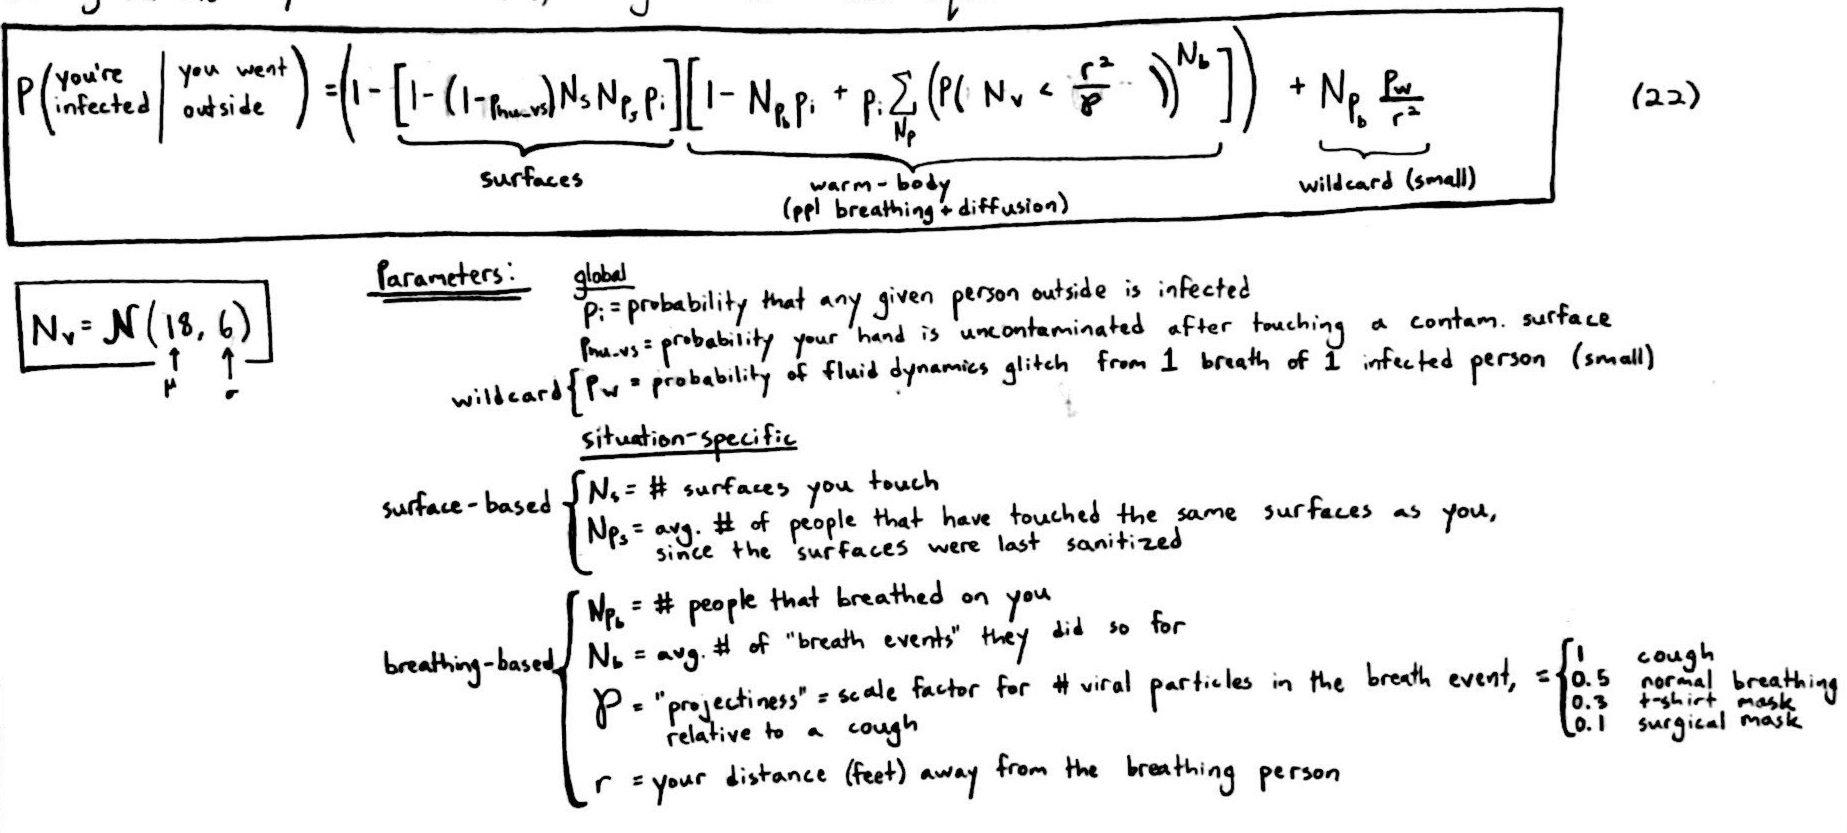 P(you're infected | you went outside) = (1 - [1 - (1 - p_hu-vs) N_s N_ps p_i][1 - N_pb p_i + p_i ∑_Np (P(N_v < r²/℘))^N_b]) + N_pb p_w/r² (22)
surfaces
warm-body
(ppl breathing + diffusion)
wildcard (small)
N_v = N(18, 6)
μ σ
Parameters:
global
p_i = probability that any given person outside is infected
p_hu-vs = probability your hand is uncontaminated after touching a contam. surface
wildcard { p_w = probability of fluid dynamics glitch from 1 breath of 1 infected person (small)
situation-specific
surface-based { N_s = # surfaces you touch
N_ps = avg. # of people that have touched the same surfaces as you,
since the surfaces were last sanitized
breathing-based { N_pb = # people that breathed on you
N_b = avg. # of "breath events" they did so for
℘ = "projectiness" = scale factor for # viral particles in the breath event, = {
relative to a cough
1 cough
0.5 normal breathing
0.3 t-shirt mask
0.1 surgical mask
r = your distance (feet) away from the breathing person